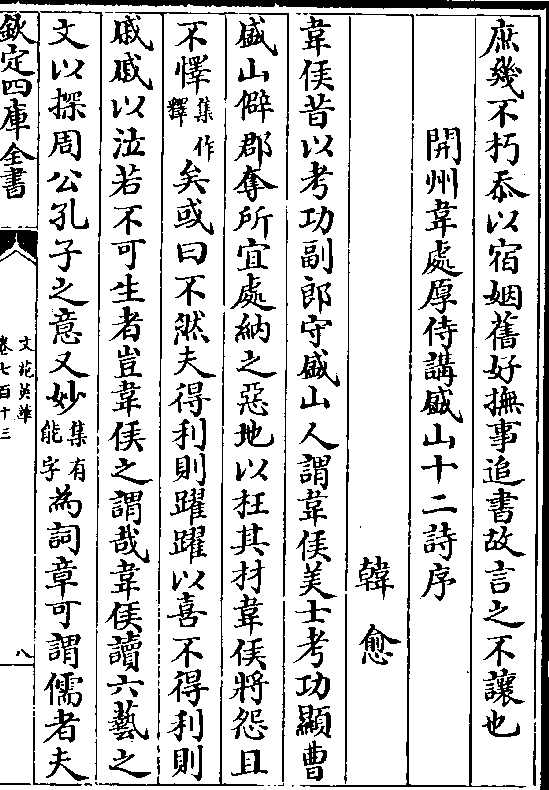 庶幾不朽忝以宿姻舊好撫事追書故言之不讓也
開州韋處厚侍講盛山十二詩序
韓愈
韋侯昔以考功副郎守盛山人謂韋侯美士考功顯曹
盛山僻郡奪所宜處納之惡地以枉其材韋侯將怨且
不懌集作釋矣或曰不然夫得利則躍躍以喜不得利則
戚戚以泣若不可生者豈韋侯之謂哉韋侯讀六藝之
文以探周公孔子之意又妙集有能字為詞章可謂儒者夫
欽定四庫全書
文苑英華
卷七百十三
八